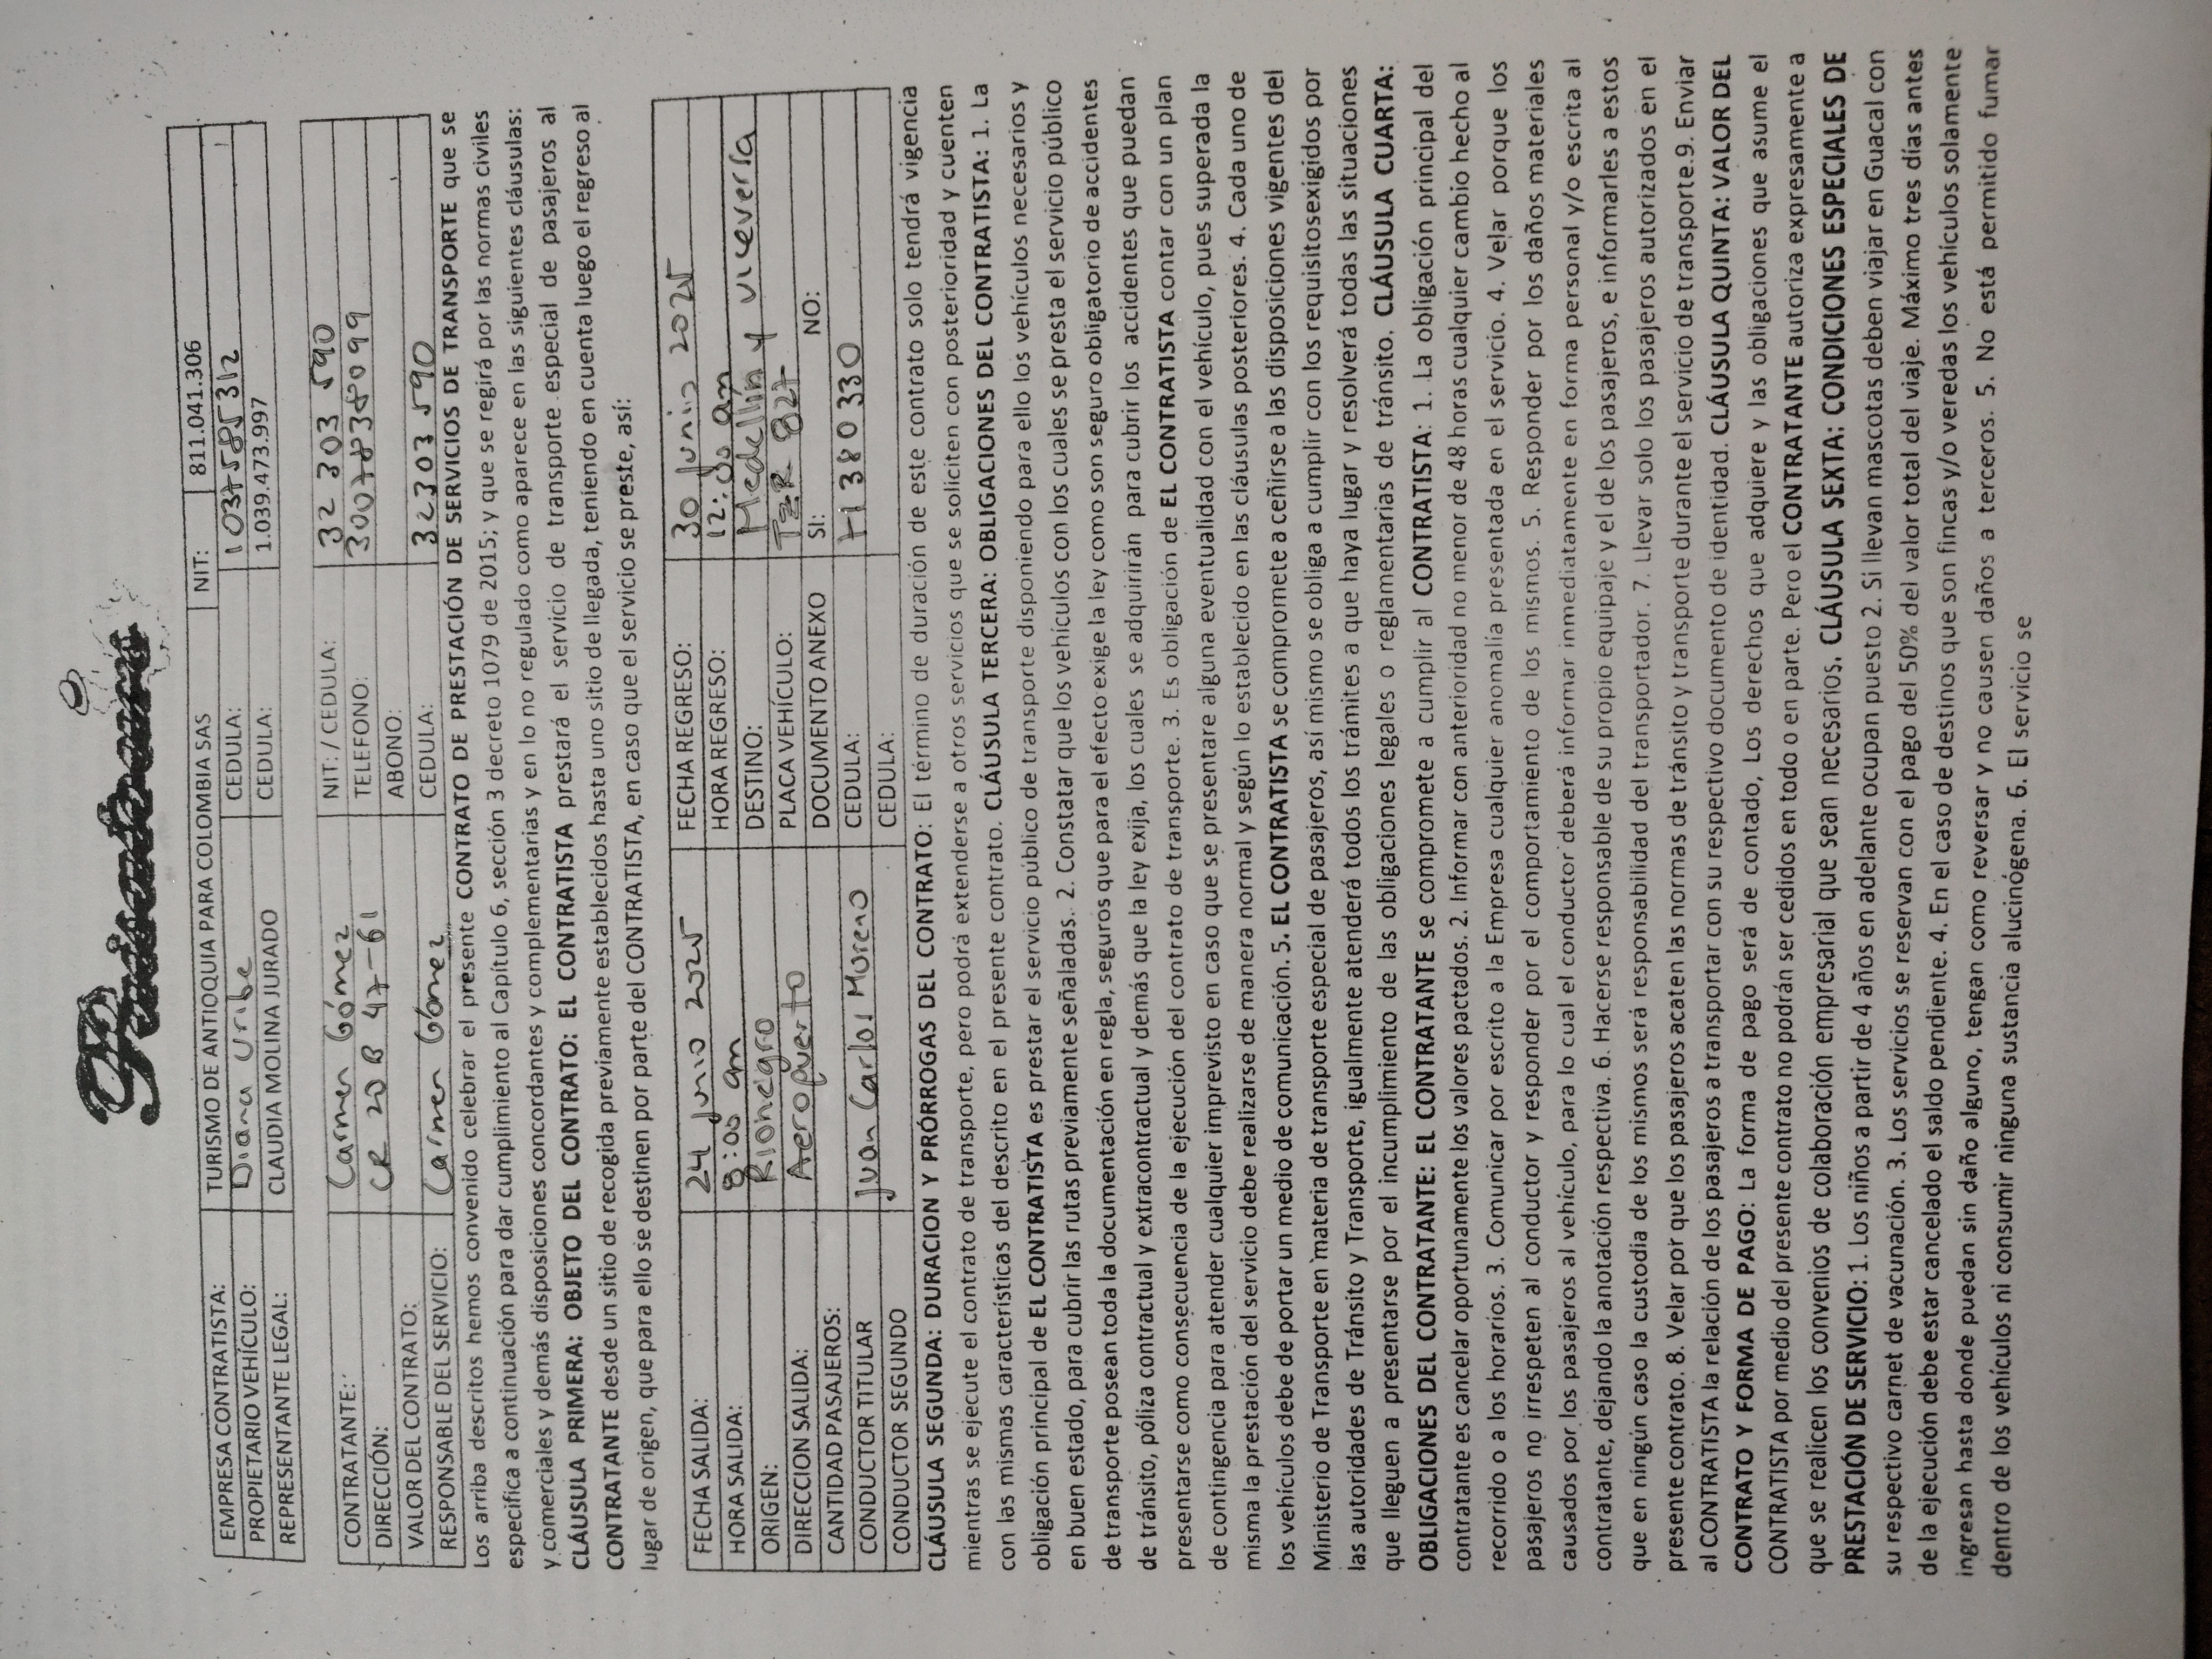 EMPRESA CONTRATISTA: TURISMO DE ANTIOQUIA PARA COLOMBIA SAS NIT: 811.041.306
PROPIETARIO VEHÍCULO: Diana Uribe CEDULA: 1037585312
REPRESENTANTE LEGAL: CLAUDIA MOLINA JURADO CEDULA: 1.039.473.997
CONTRATANTE: Carmen Gómez NIT: / CEDULA: 32 303 590
DIRECCIÓN: CR 20B 47-61 TELEFONO: 3007838099
VALOR DEL CONTRATO: ABONO:
RESPONSABLE DEL SERVICIO: Carmen Gómez CEDULA: 32303590
Los arriba descritos hemos convenido celebrar el presente CONTRATO DE PRESTACIÓN DE SERVICIOS DE TRANSPORTE que se
especifica a continuación para dar cumplimiento al Capítulo 6, sección 3 decreto 1079 de 2015; y que se regirá por las normas civiles
y comerciales y demás disposiciones concordantes y complementarias y en lo no regulado como aparece en las siguientes cláusulas:
CLÁUSULA PRIMERA: OBJETO DEL CONTRATO: EL CONTRATISTA prestará el servicio de transporte especial de pasajeros al
CONTRATANTE desde un sitio de recogida previamente establecidos hasta uno sitio de llegada, teniendo en cuenta luego el regreso al
lugar de origen, que para ello se destinen por parte del CONTRATISTA, en caso que el servicio se preste, así:
FECHA SALIDA: 24 Junio 2025 FECHA REGRESO: 30 Junio 2025
HORA SALIDA: 8:00 am HORA REGRESO: 12:00 am
ORIGEN: Rionegro DESTINO: Medellín y viceversa
DIRECCION SALIDA: Aeropuerto PLACA VEHÍCULO: 827
CANTIDAD PASAJEROS: DOCUMENTO ANEXO SI: NO:
CONDUCTOR TITULAR Juan Carlos Moreno CEDULA: 71380330
CONDUCTOR SEGUNDO CEDULA:
CLÁUSULA SEGUNDA: DURACION Y PRÓRROGAS DEL CONTRATO: El término de duración de este contrato solo tendrá vigencia
mientras se ejecute el contrato de transporte, pero podrá extenderse a otros servicios que se soliciten con posterioridad y cuenten
con las mismas características del descrito en el presente contrato. CLÁUSULA TERCERA: OBLIGACIONES DEL CONTRATISTA: 1. La
obligación principal de EL CONTRATISTA es prestar el servicio público de transporte disponiendo para ello los vehículos necesarios y
en buen estado, para cubrir las rutas previamente señaladas. 2. Constatar que los vehículos con los cuales se presta el servicio público
de transporte posean toda la documentación en regla, seguros que para el efecto exige la ley como son seguro obligatorio de accidentes
de tránsito, póliza contractual y extracontractual y demás que la ley exija, los cuales se adquirirán para cubrir los accidentes que puedan
presentarse como consecuencia de la ejecución del contrato de transporte. 3. Es obligación de EL CONTRATISTA contar con un plan
de contingencia para atender cualquier imprevisto en caso que se presentare alguna eventualidad con el vehículo, pues superada la
misma la prestación del servicio debe realizarse de manera normal y según lo establecido en las cláusulas posteriores. 4. Cada uno de
los vehículos debe de portar un medio de comunicación. 5. EL CONTRATISTA se compromete a ceñirse a las disposiciones vigentes del
Ministerio de Transporte en materia de transporte especial de pasajeros, así mismo se obliga a cumplir con los requisitosexigidos por
las autoridades de Tránsito y Transporte, igualmente atenderá todos los trámites a que haya lugar y resolverá todas las situaciones
que lleguen a presentarse por el incumplimiento de las obligaciones legales o reglamentarias de tránsito. CLÁUSULA CUARTA:
OBLIGACIONES DEL CONTRATANTE: EL CONTRATANTE se compromete a cumplir al CONTRATISTA: 1. La obligación principal del
contratante es cancelar oportunamente los valores pactados. 2. Informar con anterioridad no menor de 48 horas cualquier cambio hecho al
recorrido o a los horarios. 3. Comunicar por escrito a la Empresa cualquier anomalía presentada en el servicio. 4. Velar porque los
pasajeros no irrespeten al conductor y responder por el comportamiento de los mismos. 5. Responder por los daños materiales
causados por los pasajeros al vehículo, para lo cual el conductor deberá informar inmediatamente en forma personal y/o escrita al
contratante, dejando la anotación respectiva. 6. Hacerse responsable de su propio equipaje y el de los pasajeros, e informarles a estos
que en ningún caso la custodia de los mismos será responsabilidad del transportador. 7. Llevar solo los pasajeros autorizados en el
presente contrato. 8. Velar por que los pasajeros acaten las normas de tránsito y transporte durante el servicio de transporte.9. Enviar
al CONTRATISTA la relación de los pasajeros a transportar con su respectivo documento de identidad. CLÁUSULA QUINTA: VALOR DEL
CONTRATO Y FORMA DE PAGO: La forma de pago será de contado, Los derechos que adquiere y las obligaciones que asume el
CONTRATISTA por medio del presente contrato no podrán ser cedidos en todo o en parte. Pero el CONTRATANTE autoriza expresamente a
que se realicen los convenios de colaboración empresarial que sean necesarios. CLÁUSULA SEXTA: CONDICIONES ESPECIALES DE
PRESTACIÓN DE SERVICIO: 1. Los niños a partir de 4 años en adelante ocupan puesto 2. Si llevan mascotas deben viajar en Guacal con
su respectivo carnet de vacunación. 3. Los servicios se reservan con el pago del 50% del valor total del viaje. Máximo tres días antes
de la ejecución debe estar cancelado el saldo pendiente. 4. En el caso de destinos que son fincas y/o veredas los vehículos solamente
ingresan hasta donde puedan sin daño alguno, tengan como reversar y no causen daños a terceros. 5. No está permitido fumar
dentro de los vehículos ni consumir ninguna sustancia alucinógena. 6. El servicio se